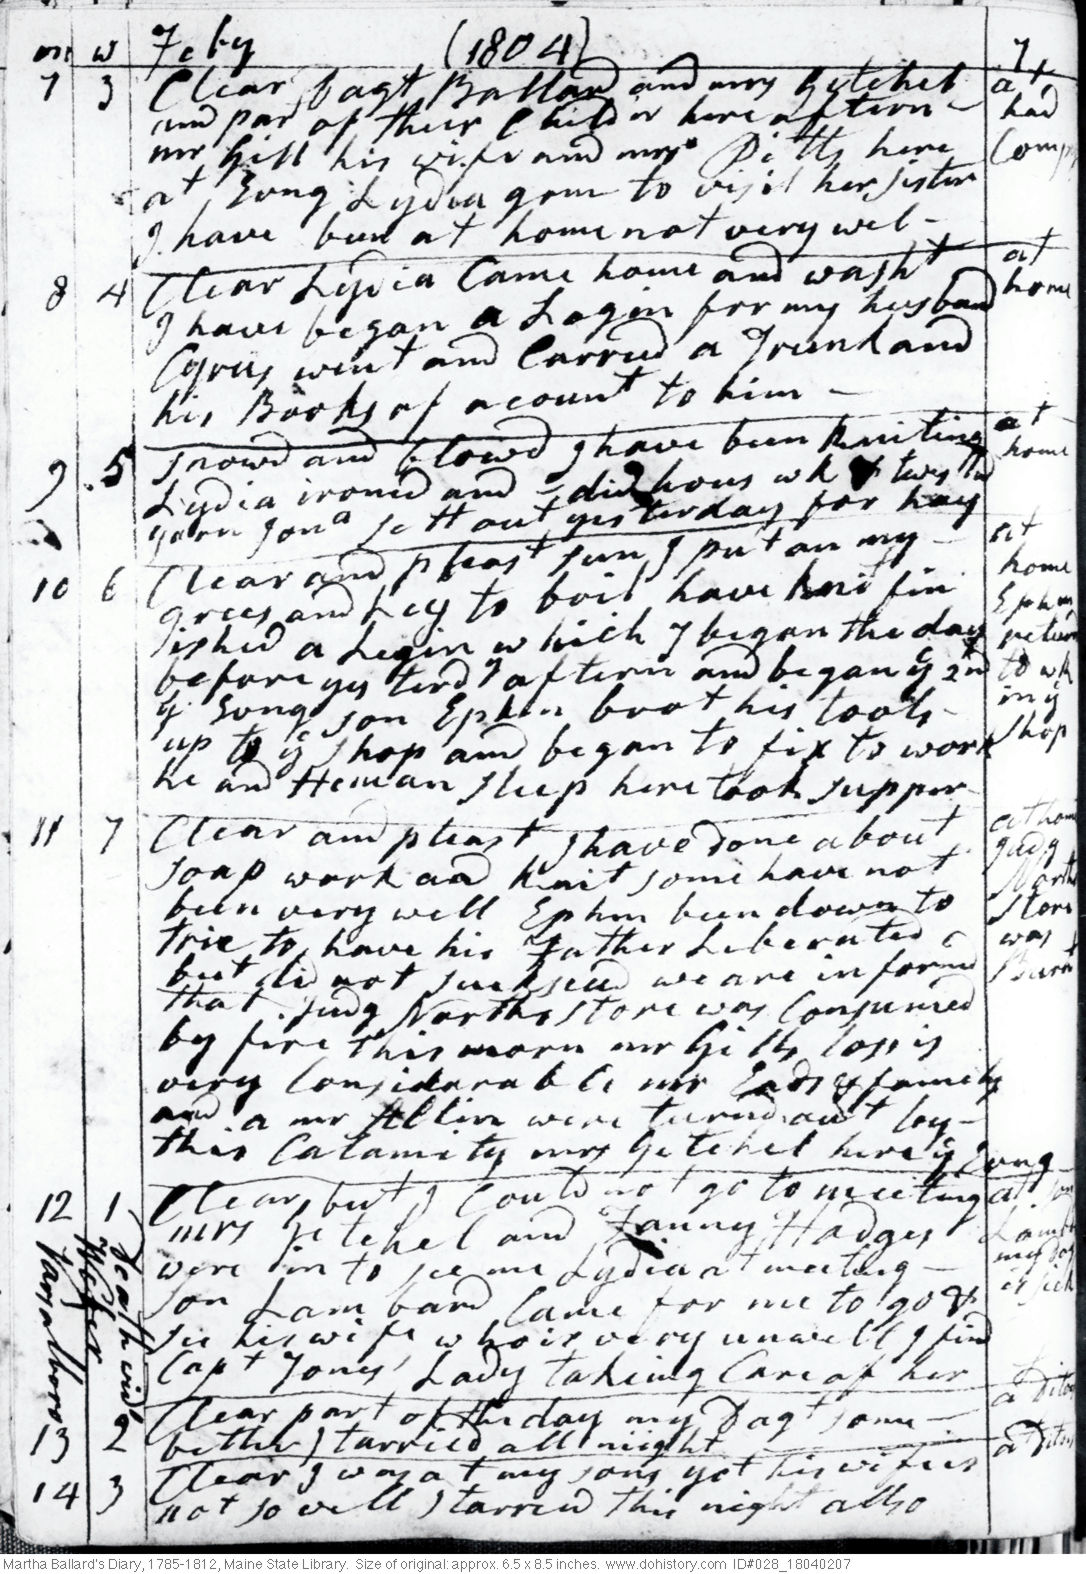 m w Feby (1804) 7,
7 3 Clear, Dagt Ballard and mrs Getchel at
and part of their Childrn here aftern - had
mr Gill his wife and mrs Pitts here Comp
at Evng Lydia gom to visit her sister
I have been at home not very wel -
8 4 Clear Lydia Came home and washt at
I have began a Login for my husband home
Cyrus went and Carried a Trunk and
his Books of acount to him -
9 5 Snowd and blowd I have been kniting at
Lydia ironed and did hous wk & twistd home
yarn Jona sett out yesterday for hay
10 6 Clear and pleast sun, I put on my - at
grees and Ley to boil have knit fin home
ished a Legin which I began the day Ephm
before yesterdy aftern and began ye 2nd return
ye Evng son Ephm brot his tools - to wk
up to ye shop and began to fix to work in ye
he and Heman sleep here took supper shop
11 7 Clear and pleast I have done about at hom
soap work and knit some have not judg
been very well Ephm been down to North
trie to have his Father Leberated store
but did not suckseed we are informd was
that Judg Norths store was Consumed Burnt
by fire this morn mr Gills loss is
very Considerable mr Eads & family
and a mr Allin were turnd out by -
this Calamity mrs Getchel here ye Evng
12 1 Clear, but I Could not go to meeting at son
mrs Getchel and Fanny Hodges Lamb
were in to see me Lydia at meeting - my dag
son Lambard Came for me to go & is sick
see his wife who is very unwell I find
Capt Jones' Lady taking Care of her
Death wid
Vassalboro
Clear part of the day my Dagt some - at Ditos
13 2 better I tarried all niight at Ditos
14 3 Clear I was at my sons yet his wife is
not so well I tarred this night allso
Martha Ballard's Diary, 1785-1812, Maine State Library. Size of original: approx. 6.5 x 8.5 inches. www.dohistory.com ID#028_18040207